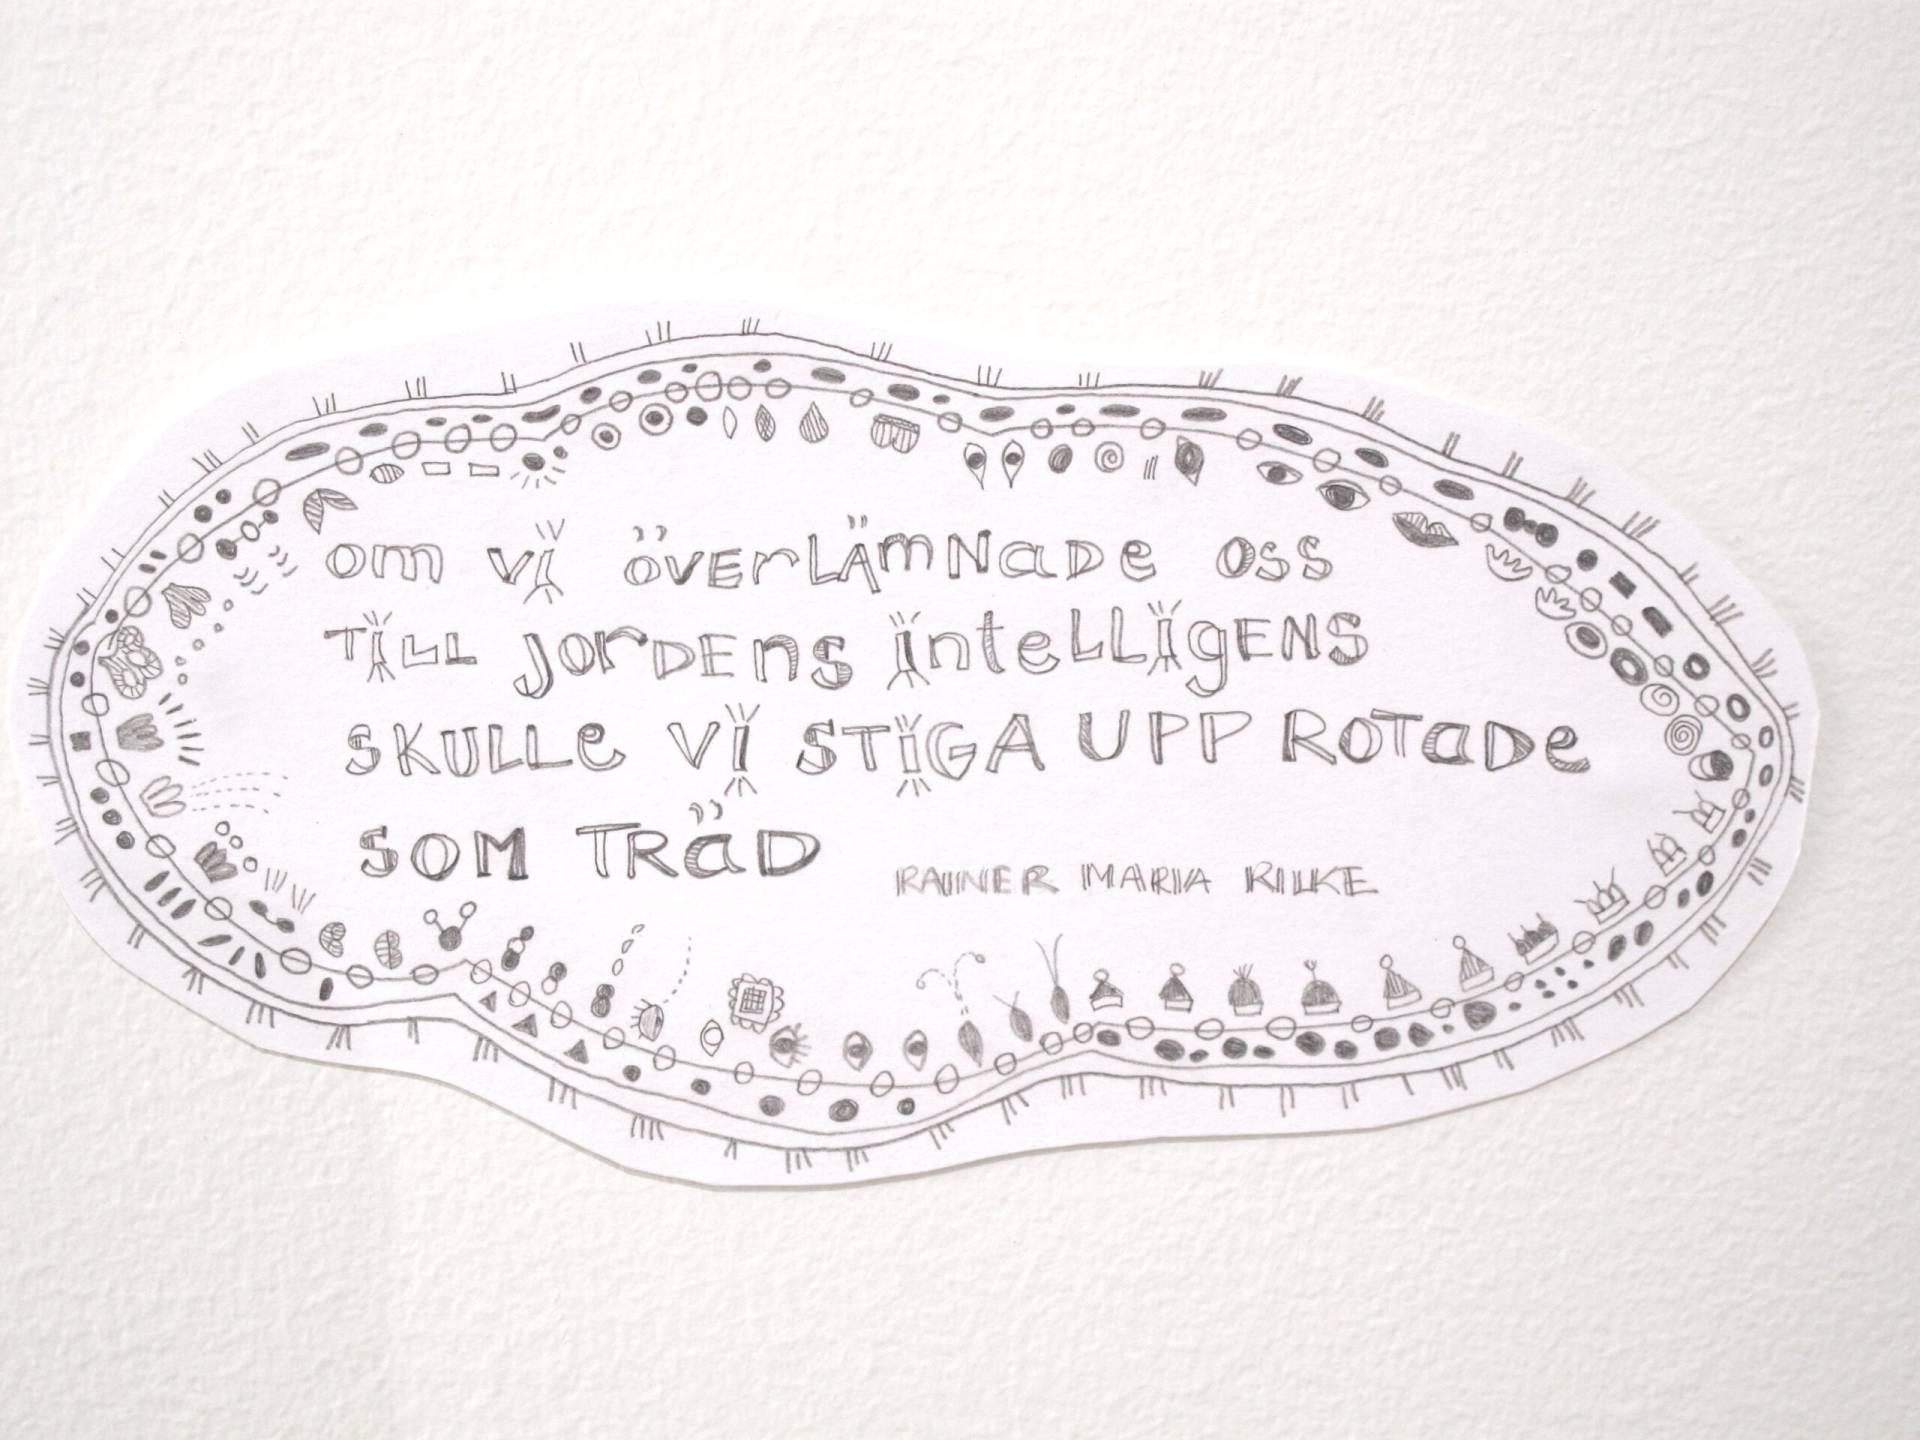 om vi överLÄmNaDe oss
TiLL jorDEns inteLLigENS
SKULLe Vi STiGA UPP ROTaDe
SOM TRäD
RAINER MARIA RILKE